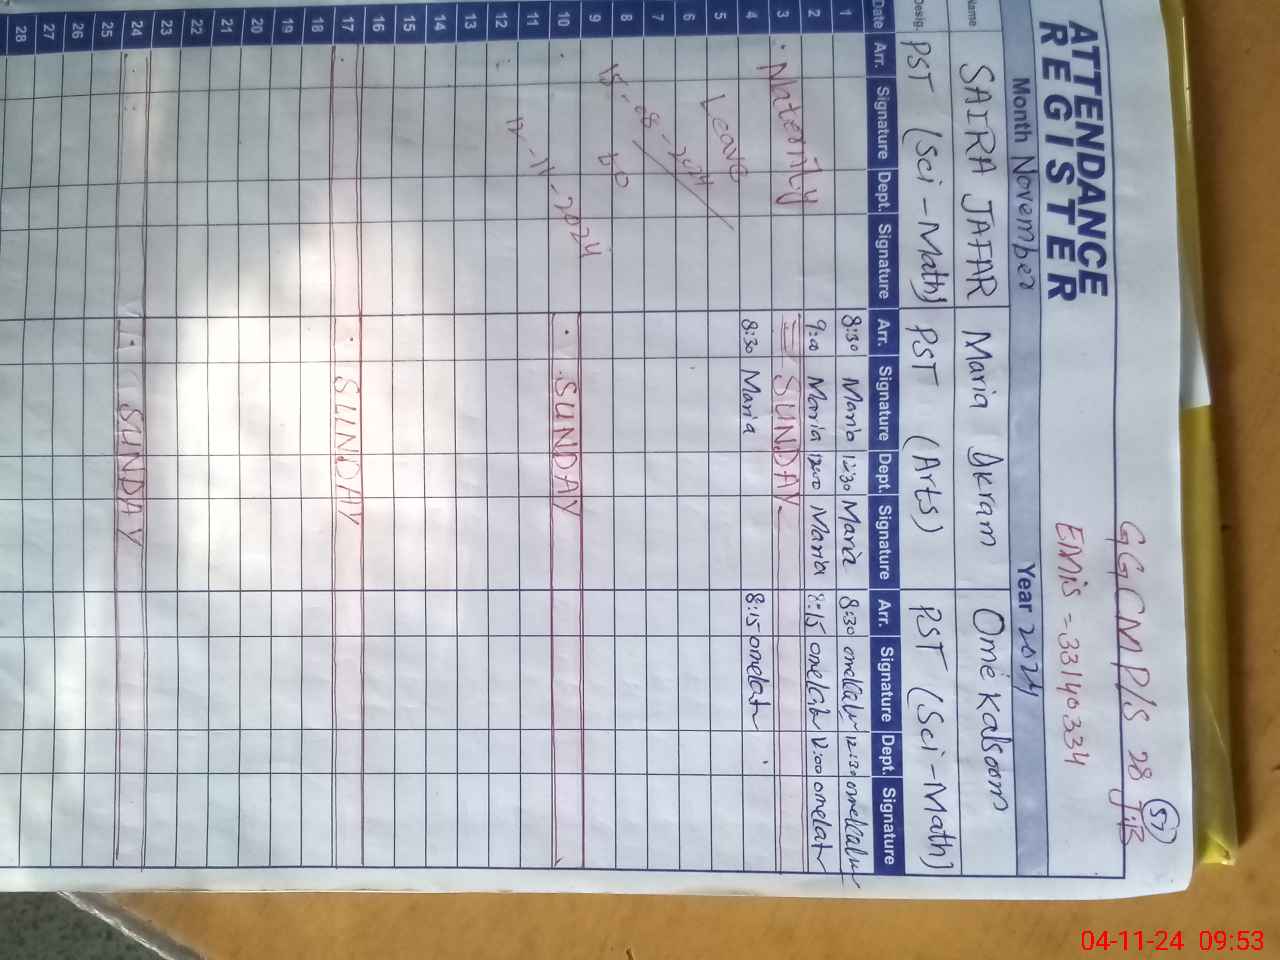 GGCMP/S 28 J.B
57
EMIS - 33140334
ATTENDANCE
REGISTER
Month November Year 2024
Name SAIRA JAFAR Maria Akram Ome Kalsoom
Desig. PST (Sci-Math) PST (Arts) PST (Sci-Math)
Date Arr. Signature Dept. Signature Arr. Signature Dept. Signature Arr. Signature Dept. Signature
1 8:30 Maria 12:30 Maria 8:30 12:30
2 9:00 Maria 12:00 Maria 8:15 12:00
3 Maternity SUNDAY
4 Leave 8:30 Maria 8:15
5
6 15-08-2024
7
8 to
9
10 12-11-2024 SUNDAY
11
12
13
14
15
16
17 SUNDAY
18
19
20
21
22
23
24 SUNDAY
25
26
27
28
04-11-24 09:53